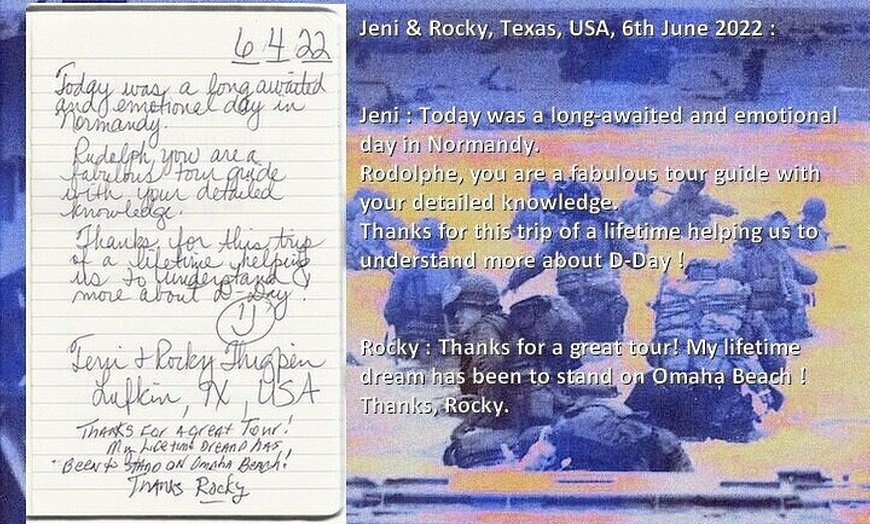 6 4 22
Today was a long awaited
and emotional day in
Normandy.
Rudolph, you are a
fabulous tour guide
with your detailed
knowledge.
Thanks for this trip
of a lifetime helping
us to understand
more about D-Day!
Jeni & Rocky Thigpen
Lufkin, TX, USA
THANKS FOR A GREAT TOUR!
My LIFETIME DREAM HAS
BEEN to STAND ON Omaha BEACH!
THANKS Rocky
Jeni & Rocky, Texas, USA, 6th June 2022 :
Jeni : Today was a long-awaited and emotional
day in Normandy.
Rodolphe, you are a fabulous tour guide with
your detailed knowledge.
Thanks for this trip of a lifetime helping us to
understand more about D-Day !
Rocky : Thanks for a great tour! My lifetime
dream has been to stand on Omaha Beach !
Thanks, Rocky.